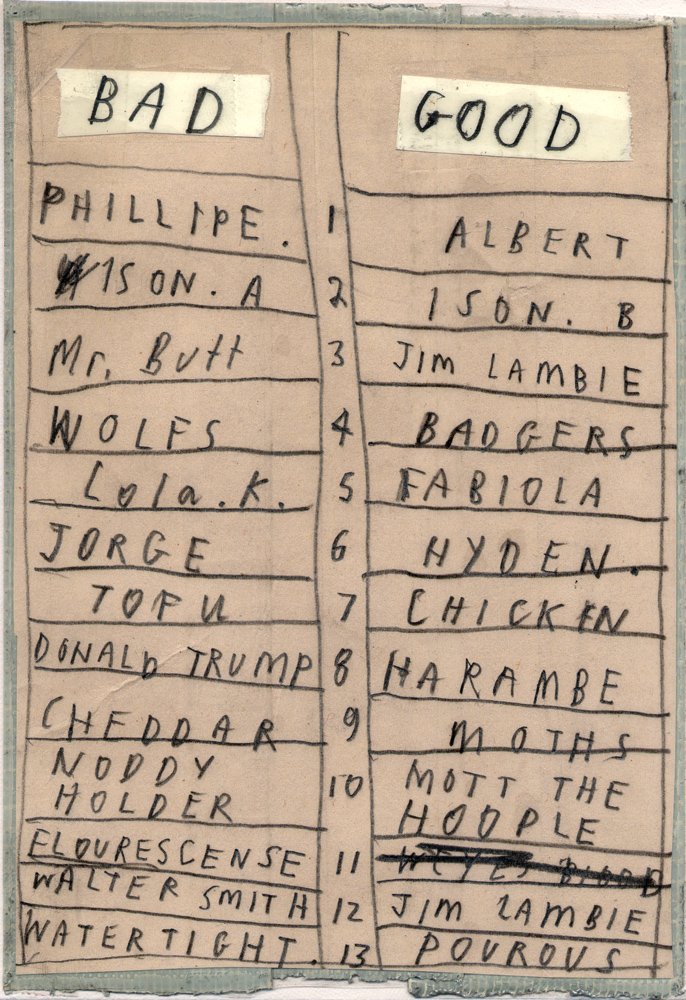 BAD GOOD
PHILLIPE. 1 ALBERT
ISON. A 2 ISON. B
Mr. Butt 3 JIM LAMBIE
WOLFS 4 BADGERS
Lola.K. 5 FABIOLA
JORGE 6 HYDEN.
TOFU 7 CHICKEN
DONALD TRUMP 8 HARAMBE
CHEDDAR 9 MOTHS
NODDY
HOLDER 10 MOTT THE
HOOPLE
FLOURESCENSE 11 WEYES BLOOD
WALTER SMITH 12 JIM LAMBIE
WATERTIGHT. 13 POUROUS